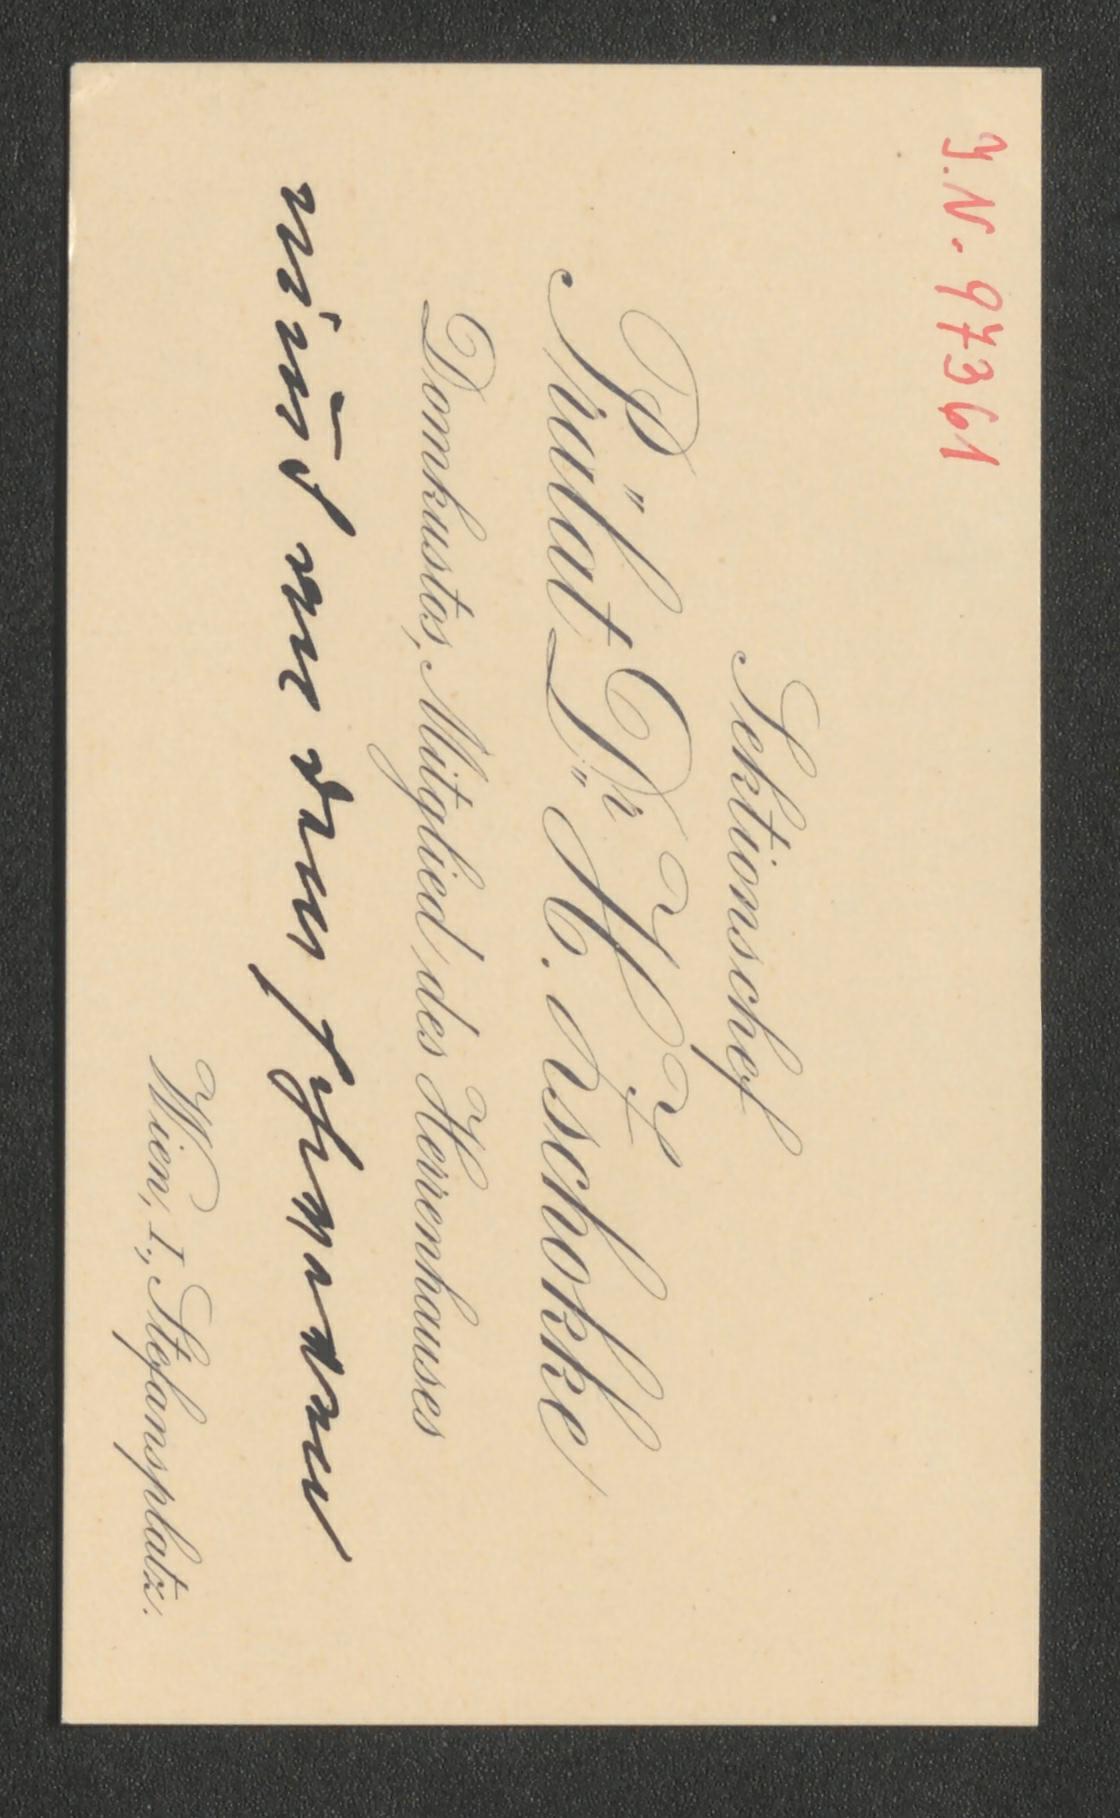 J.N. 97361
Sektionschef
Prälat Dr. H. Zschokke
Domkustos, Mitglied des Herrenhauses
nim̅t an der
Wien, I., Stefansplatz.